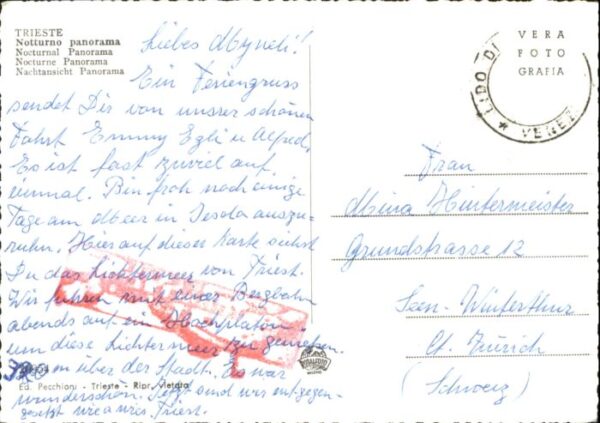 TRIESTE
Notturno panorama
Nocturnal Panorama
Nocturne Panorama
Nachtansicht Panorama
Liebes Myneli!
Ein Feriengruss
sendet Dir von unser schönen
Fahrt Emmy Egli u Alfred,
Es ist fast zuviel auf
einmal. Bin froh noch einige
Tage am Meer in Jesolo auszu-
ruhn. Hier auf dieser Karte siehst
Du das Lichtermeer von Triest.
Wir fuhren mit einer Bergbahn
abends auf ein Hochplatou
um diese Lichtermeer zu geniessen.
über der Stadt. Es war
wunderschön. Jetzt sind wir entgegen-
gesetzt vis a vis Triest.
Ed. Pecchiari - Trieste - Ripr. vietata
VERA
FOTO
GRAFIA
LIDO DI
VENEZ
Frau
Mina Hintermeister
Grundstrasse 12
Seen-Winterthur
Ct. Zürich
(Schweiz)